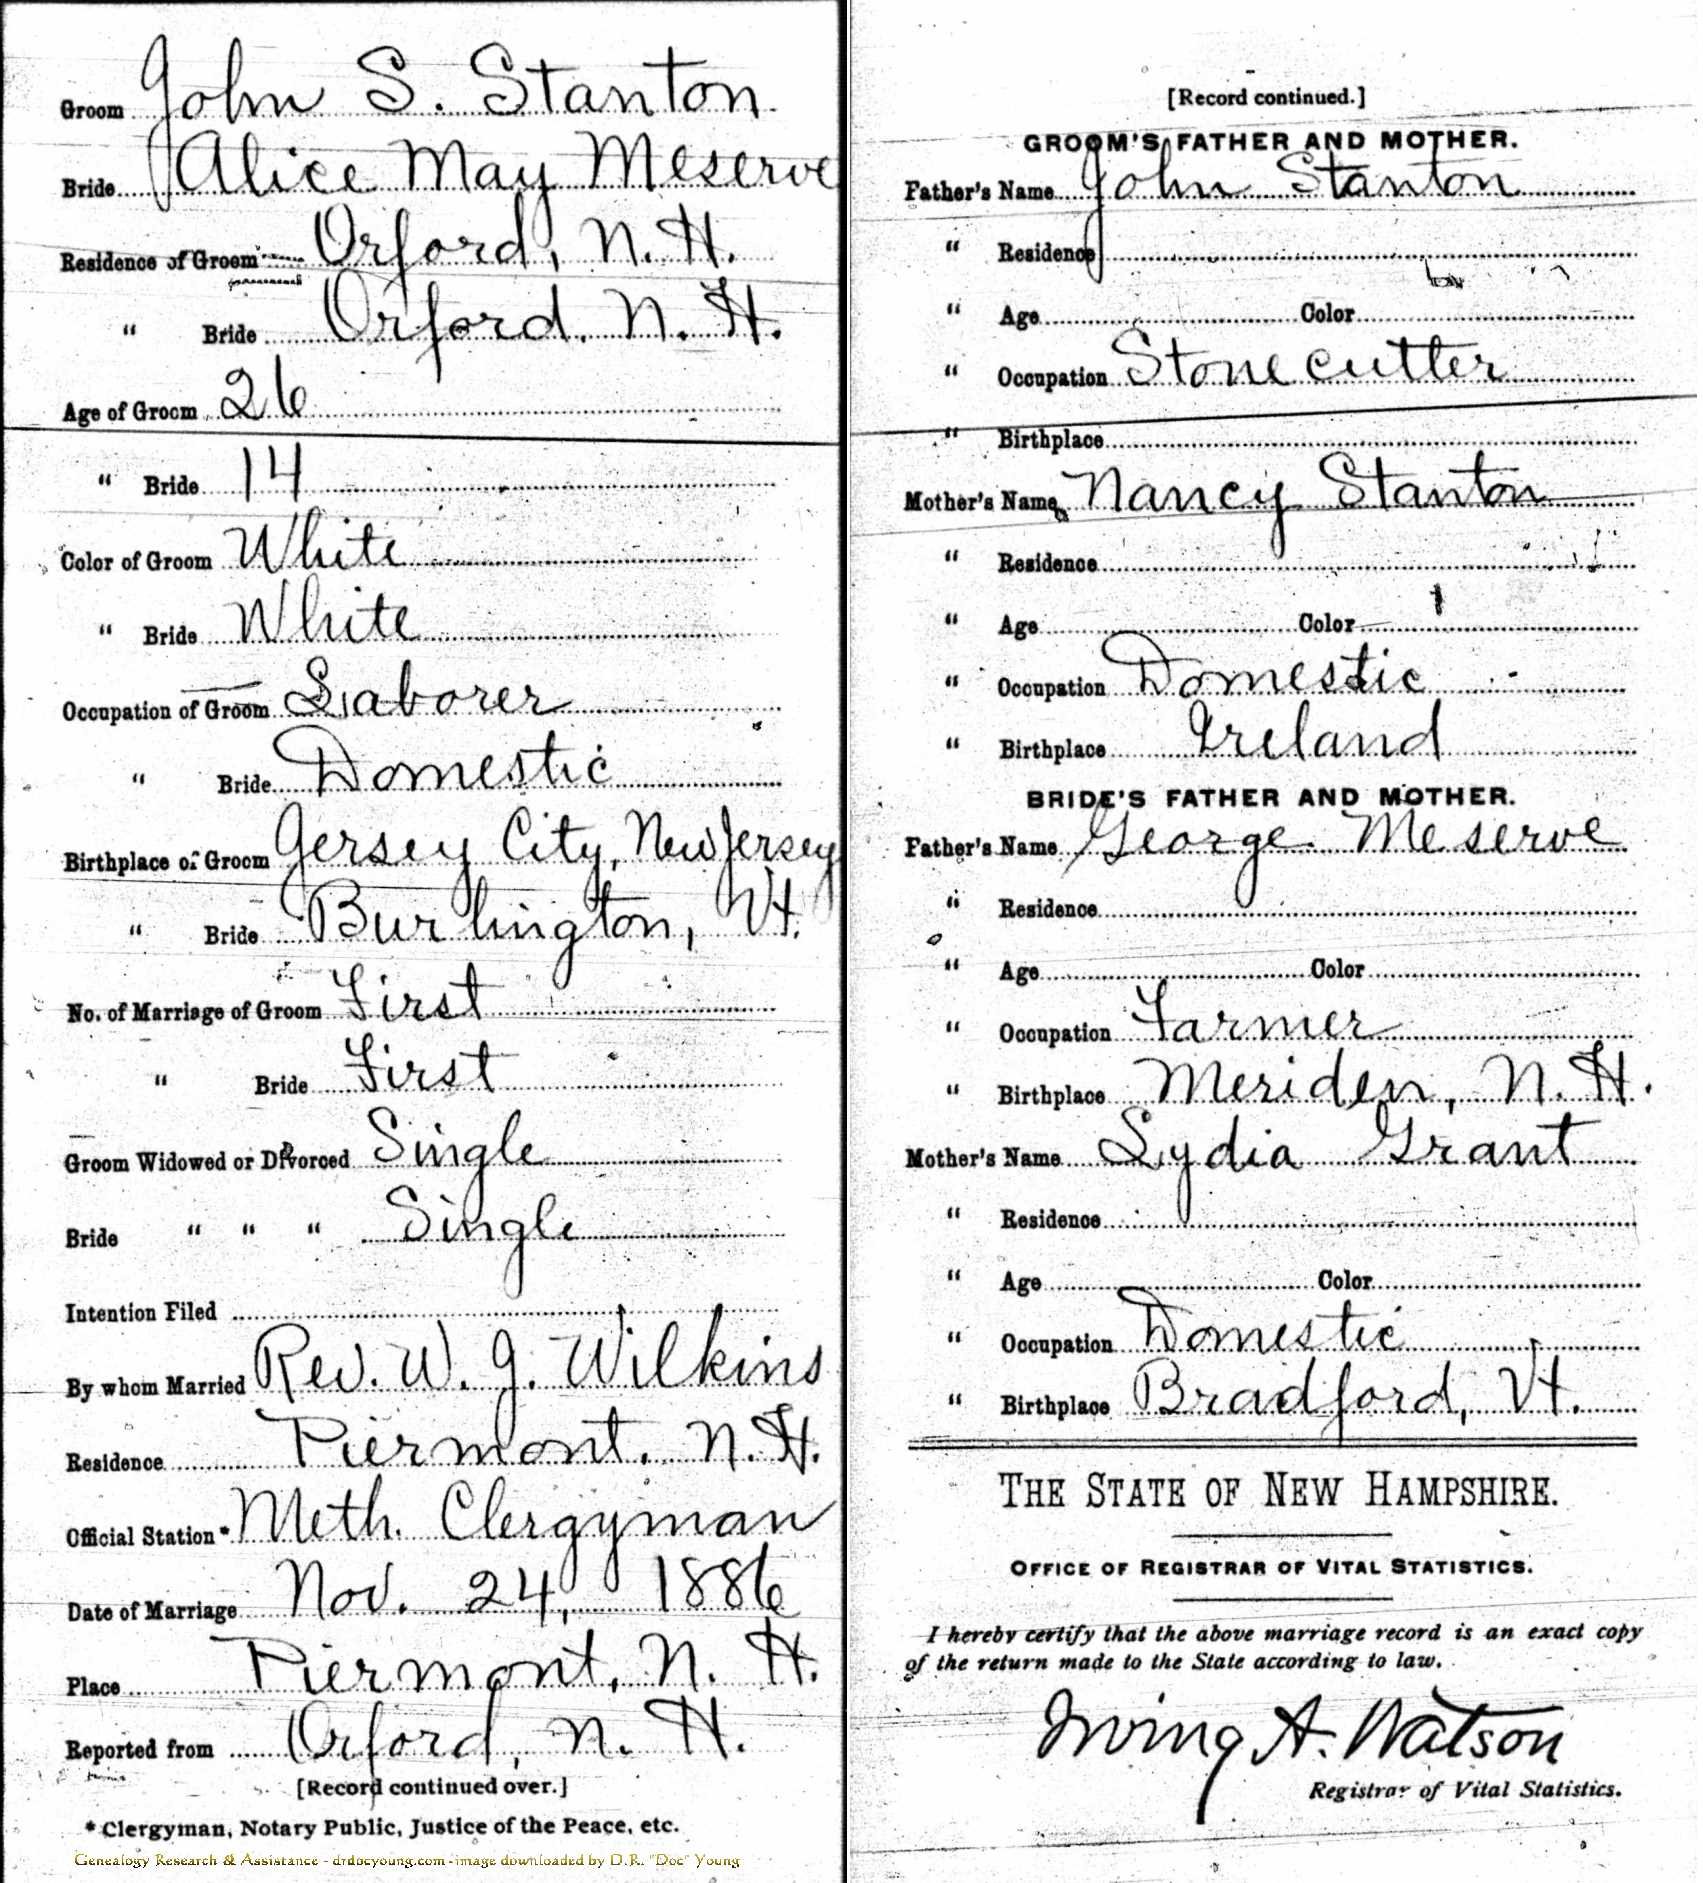 Groom John S. Stanton.
Bride Alice May Meserve
Residence of Groom Orford, N. H.
" Bride Orford, N. H.
Age of Groom 26
" Bride 14
Color of Groom White
" Bride White
Occupation of Groom Laborer
" Bride Domestic
Birthplace of Groom Jersey City, New Jersey
" Bride Burlington, Vt.
No. of Marriage of Groom First
" Bride First
Groom Widowed or Divorced Single
Bride " " " Single
Intention Filed
By whom Married Rev. W. J. Wilkins
Residence Piermont, N. H.
Official Station* Meth. Clergyman
Date of Marriage Nov. 24, 1886
Place Piermont, N. H.
Reported from Orford, N. H.
[Record continued over.]
* Clergyman, Notary Public, Justice of the Peace, etc.
Genealogy Research & Assistance - drdocyoung.com - image downloaded by D.R. "Doc" Young
[Record continued.]
GROOM'S FATHER AND MOTHER.
Father's Name John Stanton
" Residence
" Age Color
" Occupation Stone cutter
" Birthplace
Mother's Name Nancy Stanton
" Residence
" Age Color
" Occupation Domestic
" Birthplace Ireland
BRIDE'S FATHER AND MOTHER.
Father's Name George Meserve
" Residence
" Age Color
" Occupation Farmer
" Birthplace Meriden, N. H.
Mother's Name Lydia Grant
" Residence
" Age Color
" Occupation Domestic
" Birthplace Bradford, Vt.
THE STATE OF NEW HAMPSHIRE.
OFFICE OF REGISTRAR OF VITAL STATISTICS.
I hereby certify that the above marriage record is an exact copy
of the return made to the State according to law.
Irving A. Watson
Registrar of Vital Statistics.